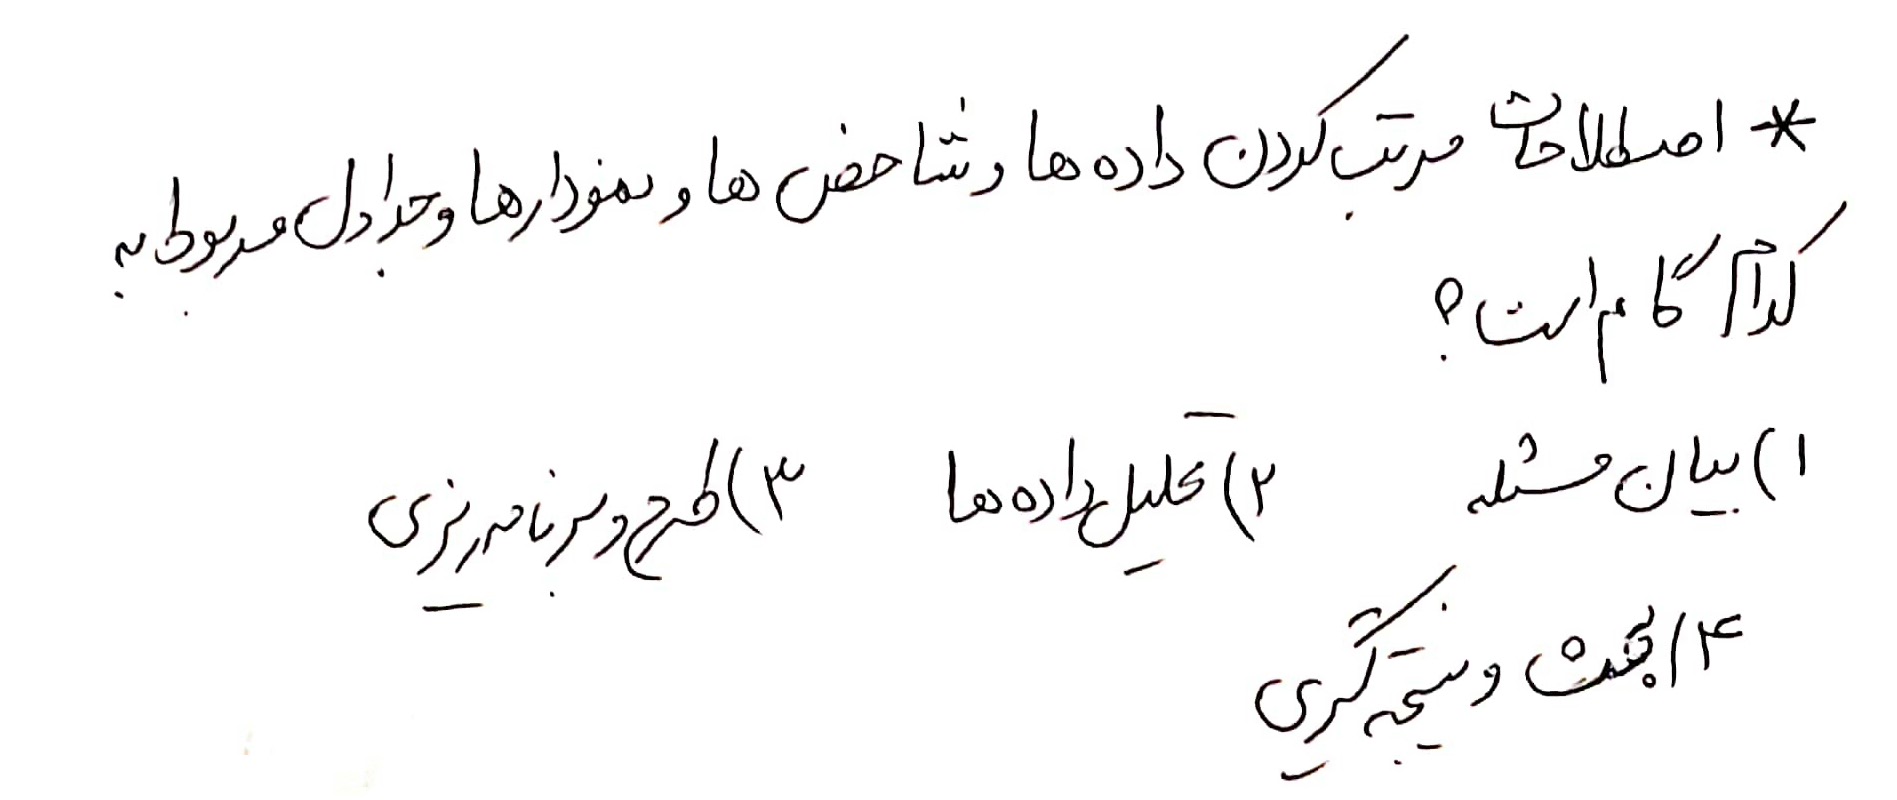 * اصطلاحات مرتب کردن داده ها و شاخص ها و نمودارها و جداول مربوط به
کدام گام است؟
۱) بیان مسئله ۲) تحلیل داده ها ۳) طرح و برنامه ریزی
۴) بحث و نتیجه گیری